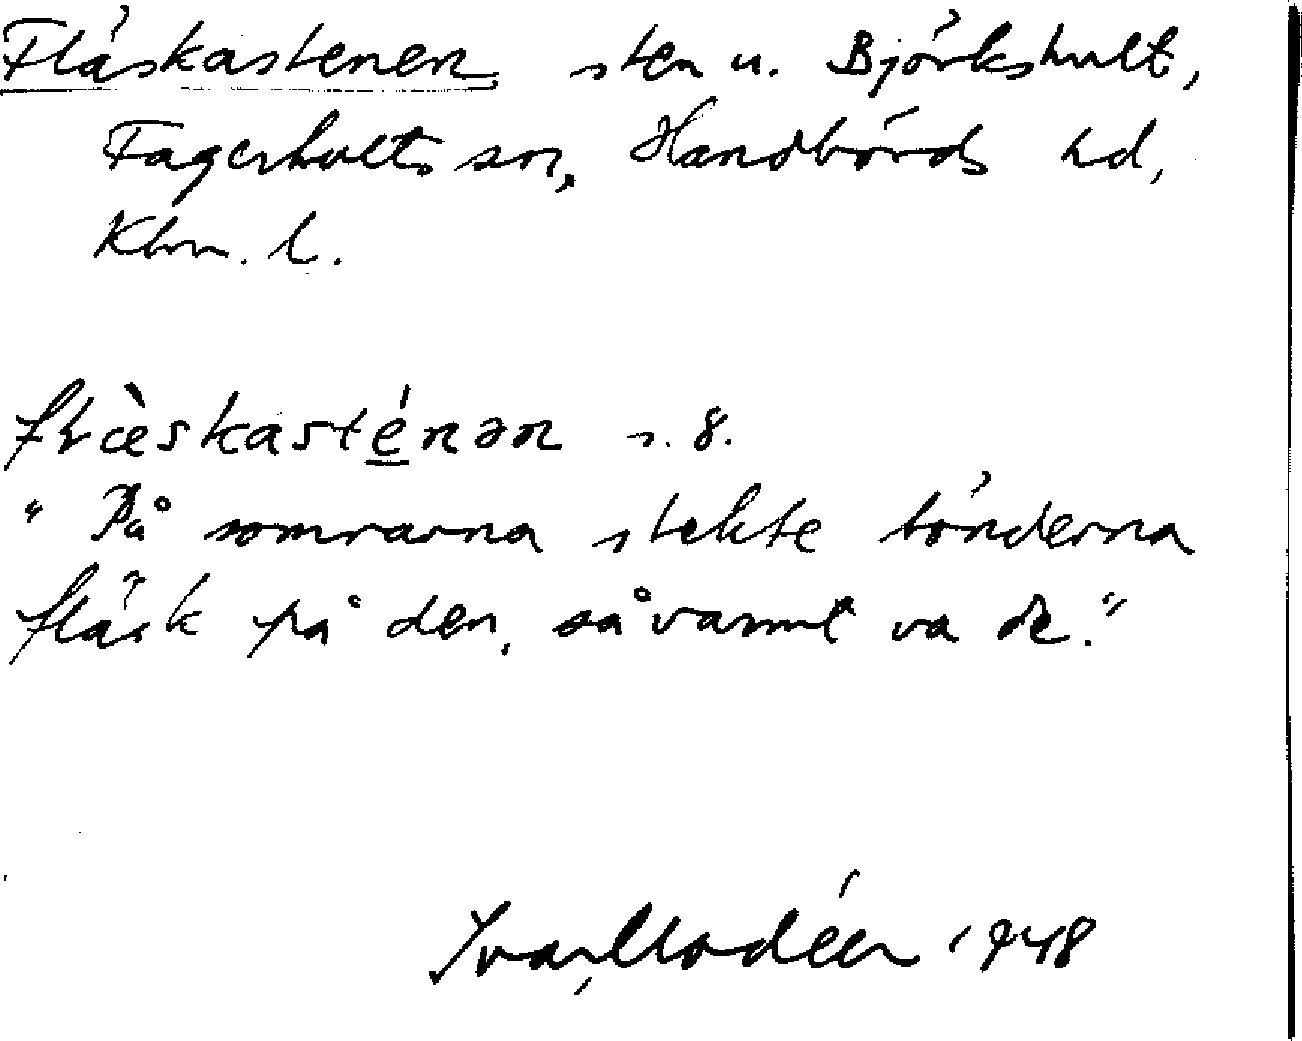 Fläskastenen sten u. Björkshult,
Fagerhults sn, Handbörds hd,
Klm. l.
flæ̀skasté̲nən s. 8.
"På somrarna stekte bönderna
fläsk på den, så varmt va de."
Ivar Modéer 1948